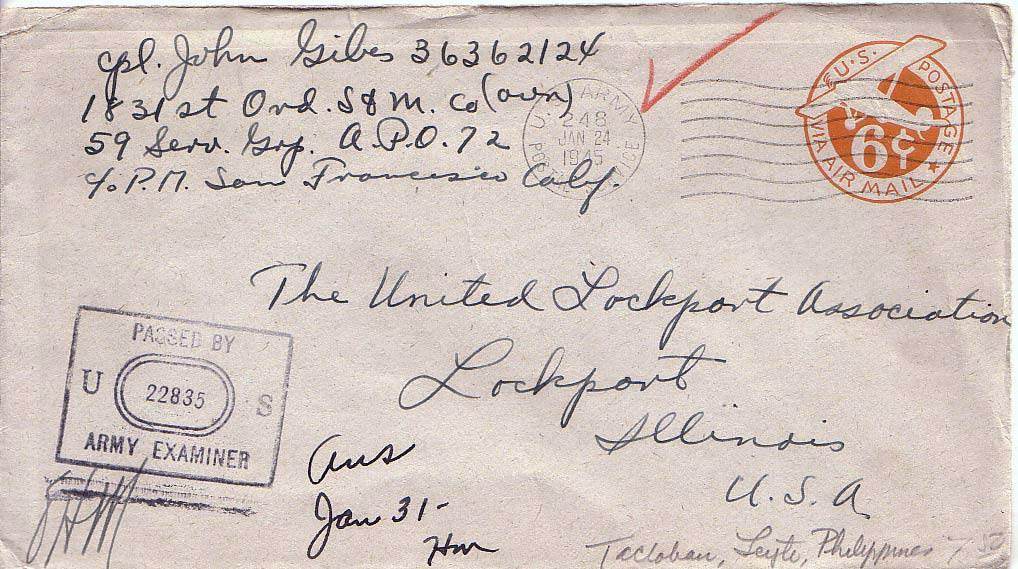 cpl. John Gibes 36362124
1831st Ord. S & M. Co (avn)
59 Serv. Grp. A.P.O. 72
c/o P.M. San Francisco Calif.
U.S. ARMY
248
JAN 24
1945
POSTAL SERVICE
U.S. POSTAGE
6¢
VIA AIR MAIL
The United Lockport Association
Lockport
Illinois
U.S.A
PASSED BY
U 22835 S
ARMY EXAMINER
Ans
Jan 31-
Tacloban, Leyte, Philippines